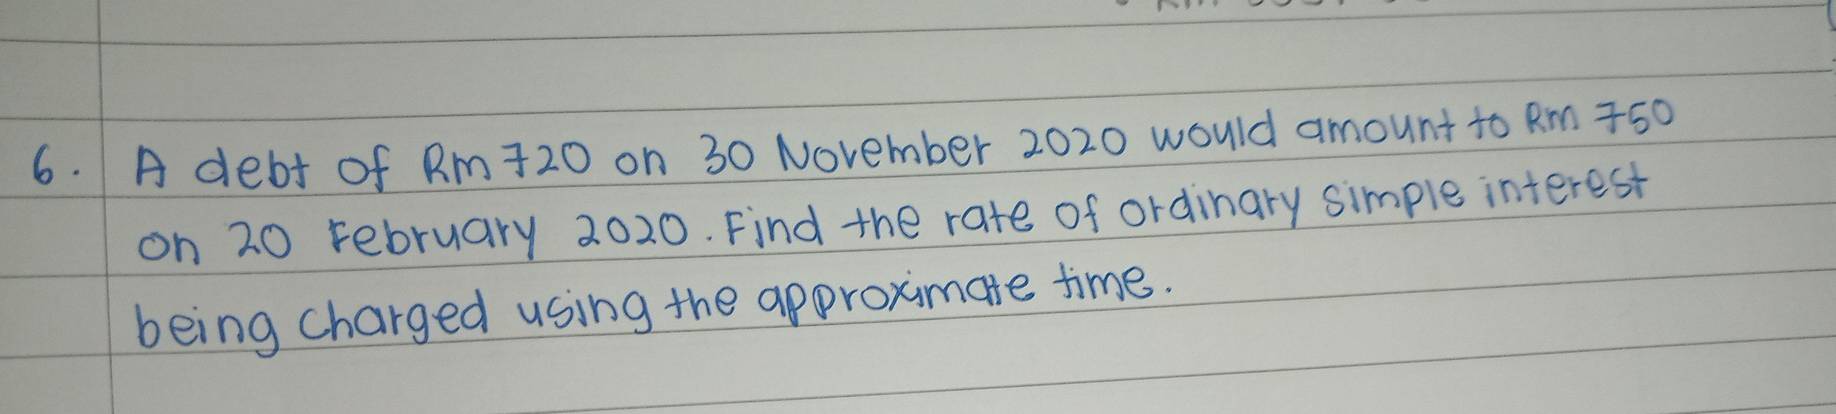 6. A debt of Rm 720 on 30 November 2020 would amount to Rm 750
on 20 February 2020. Find the rate of ordinary simple interest
being charged using the approximate time.